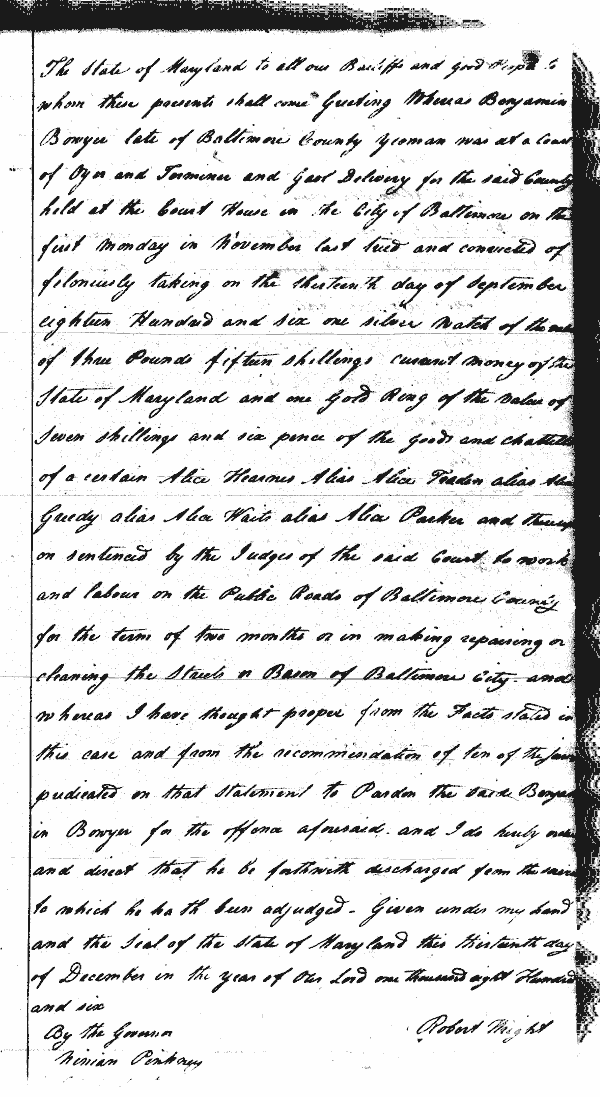 The State of Maryland to all our Bailiffs and good People to
whom these presents shall come Greeting Whereas Benjamin
Bowyer late of Baltimore County Yeoman was at a Court
of Oyer and Terminer and Gaol Delivery for the said County
held at the Court House in the City of Baltimore on the
first Monday in November last tried and convicted of
feloniously taking on the thirteenth day of September
eighteen Hundred and six one silver Watch of the value
of three Pounds fifteen shillings current money of the
State of Maryland and one Gold Ring of the value of
Seven shillings and six pence of the goods and chattells
of a certain Alice Hearnes Alias Alice Teaden alias Alice
Greedy alias Alice Waits alias Alice Parker and thereup
on sentenced by the Judges of the said Court to work
and labour on the Public Roads of Baltimore County
for the term of two months or in making repairing or
cleaning the Streets or Bason of Baltimore City - and
whereas I have thought proper from the Facts stated in
this case and from the recommendation of ten of the Jurors
predicated on that statement to Pardon the said Benjam
in Bowyer for the offence aforesaid. and I do hereby order
and direct that he be forthwith discharged from the
to which he hath been adjudged - Given under my hand
and the Seal of the State of Maryland this thirteenth day
of December in the year of Our Lord one thousand eight Hundred
and six
By the Governor Robert Wright
Ninian Pinkney